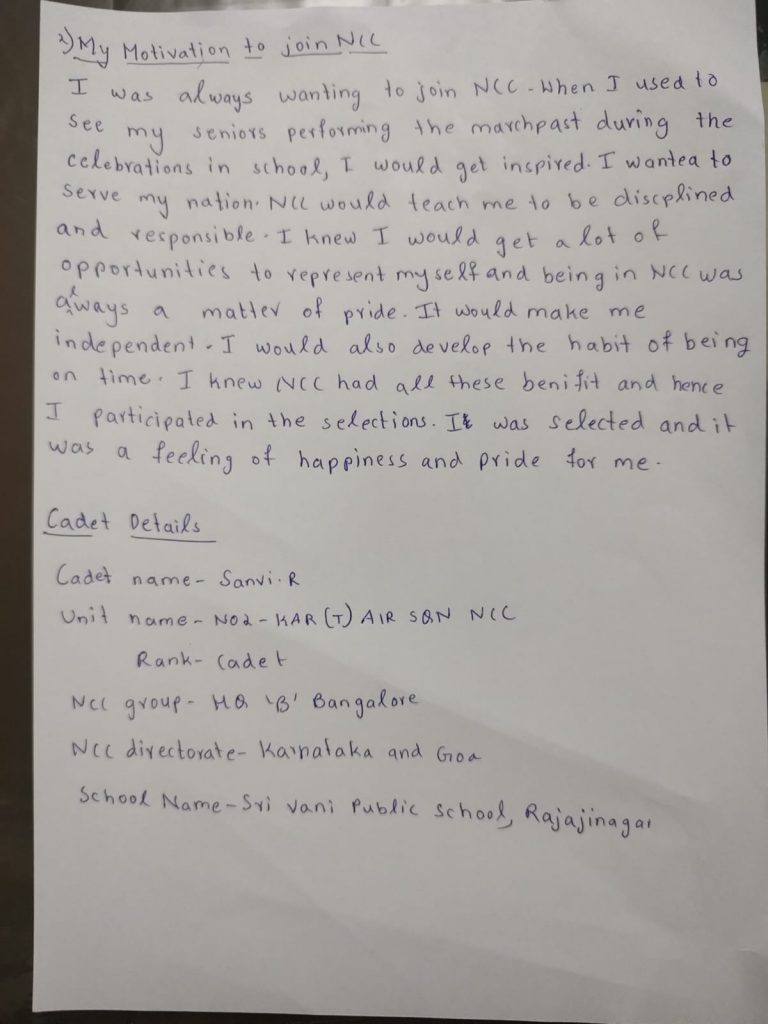 2) My Motivation to join NCC
I was always wanting to join NCC. When I used to
see my seniors performing the marchpast during the
celebrations in school, I would get inspired. I wantea to
serve my nation. NCC would teach me to be discplined
and responsible. I knew I would get a lot of
opportunities to represent myself and being in NCC was
always a matter of pride. It would make me
independent. I would also develop the habit of being
on time. I knew NCC had all these benifit and hence
I participated in the selections. I was selected and it
was a feeling of happiness and pride for me.
Cadet Details
Cadet name- Sanvi.R
Unit name- NO2-KAR (T) AIR SQN NCC
Rank- Cadet
NCC group- HQ 'B' Bangalore
NCC directorate- Karnataka and Goa
School Name-Sri Vani Public School, Rajajinagar